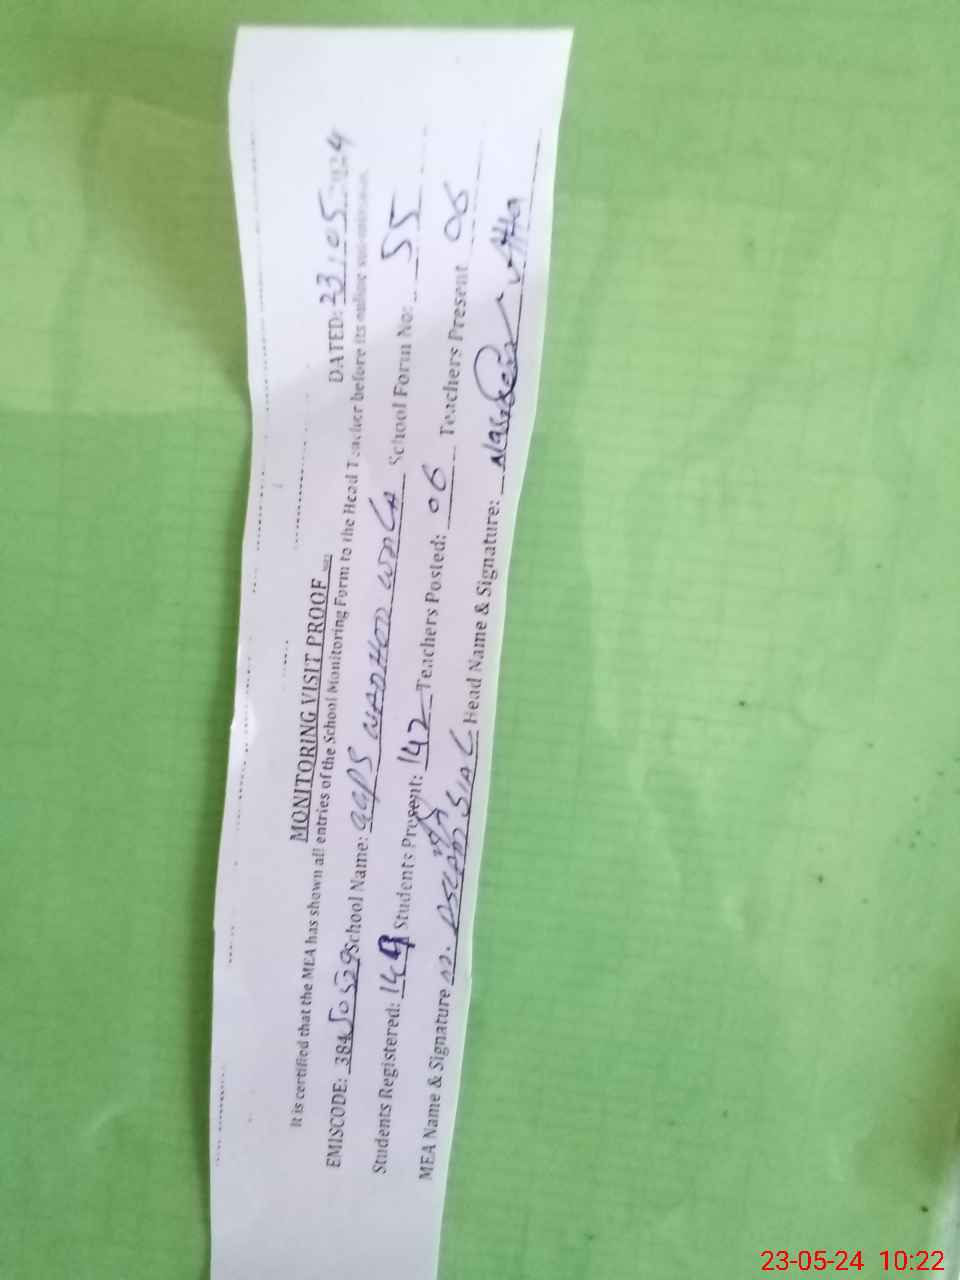 MONITORING VISIT PROOF
DATED: 23/05/2024
It is certified that the MEA has shown all entries of the School Monitoring Form to the Head Teacher before its online
EMISCODE: 38450529 School Name: GGPS WADHOO WALA School Form No: 55
Students Registered: 149 Students Present: 142 Teachers Posted: 06 Teachers Present 06
MEA Name & Signature M. SIAL Head Name & Signature:
23-05-24 10:22